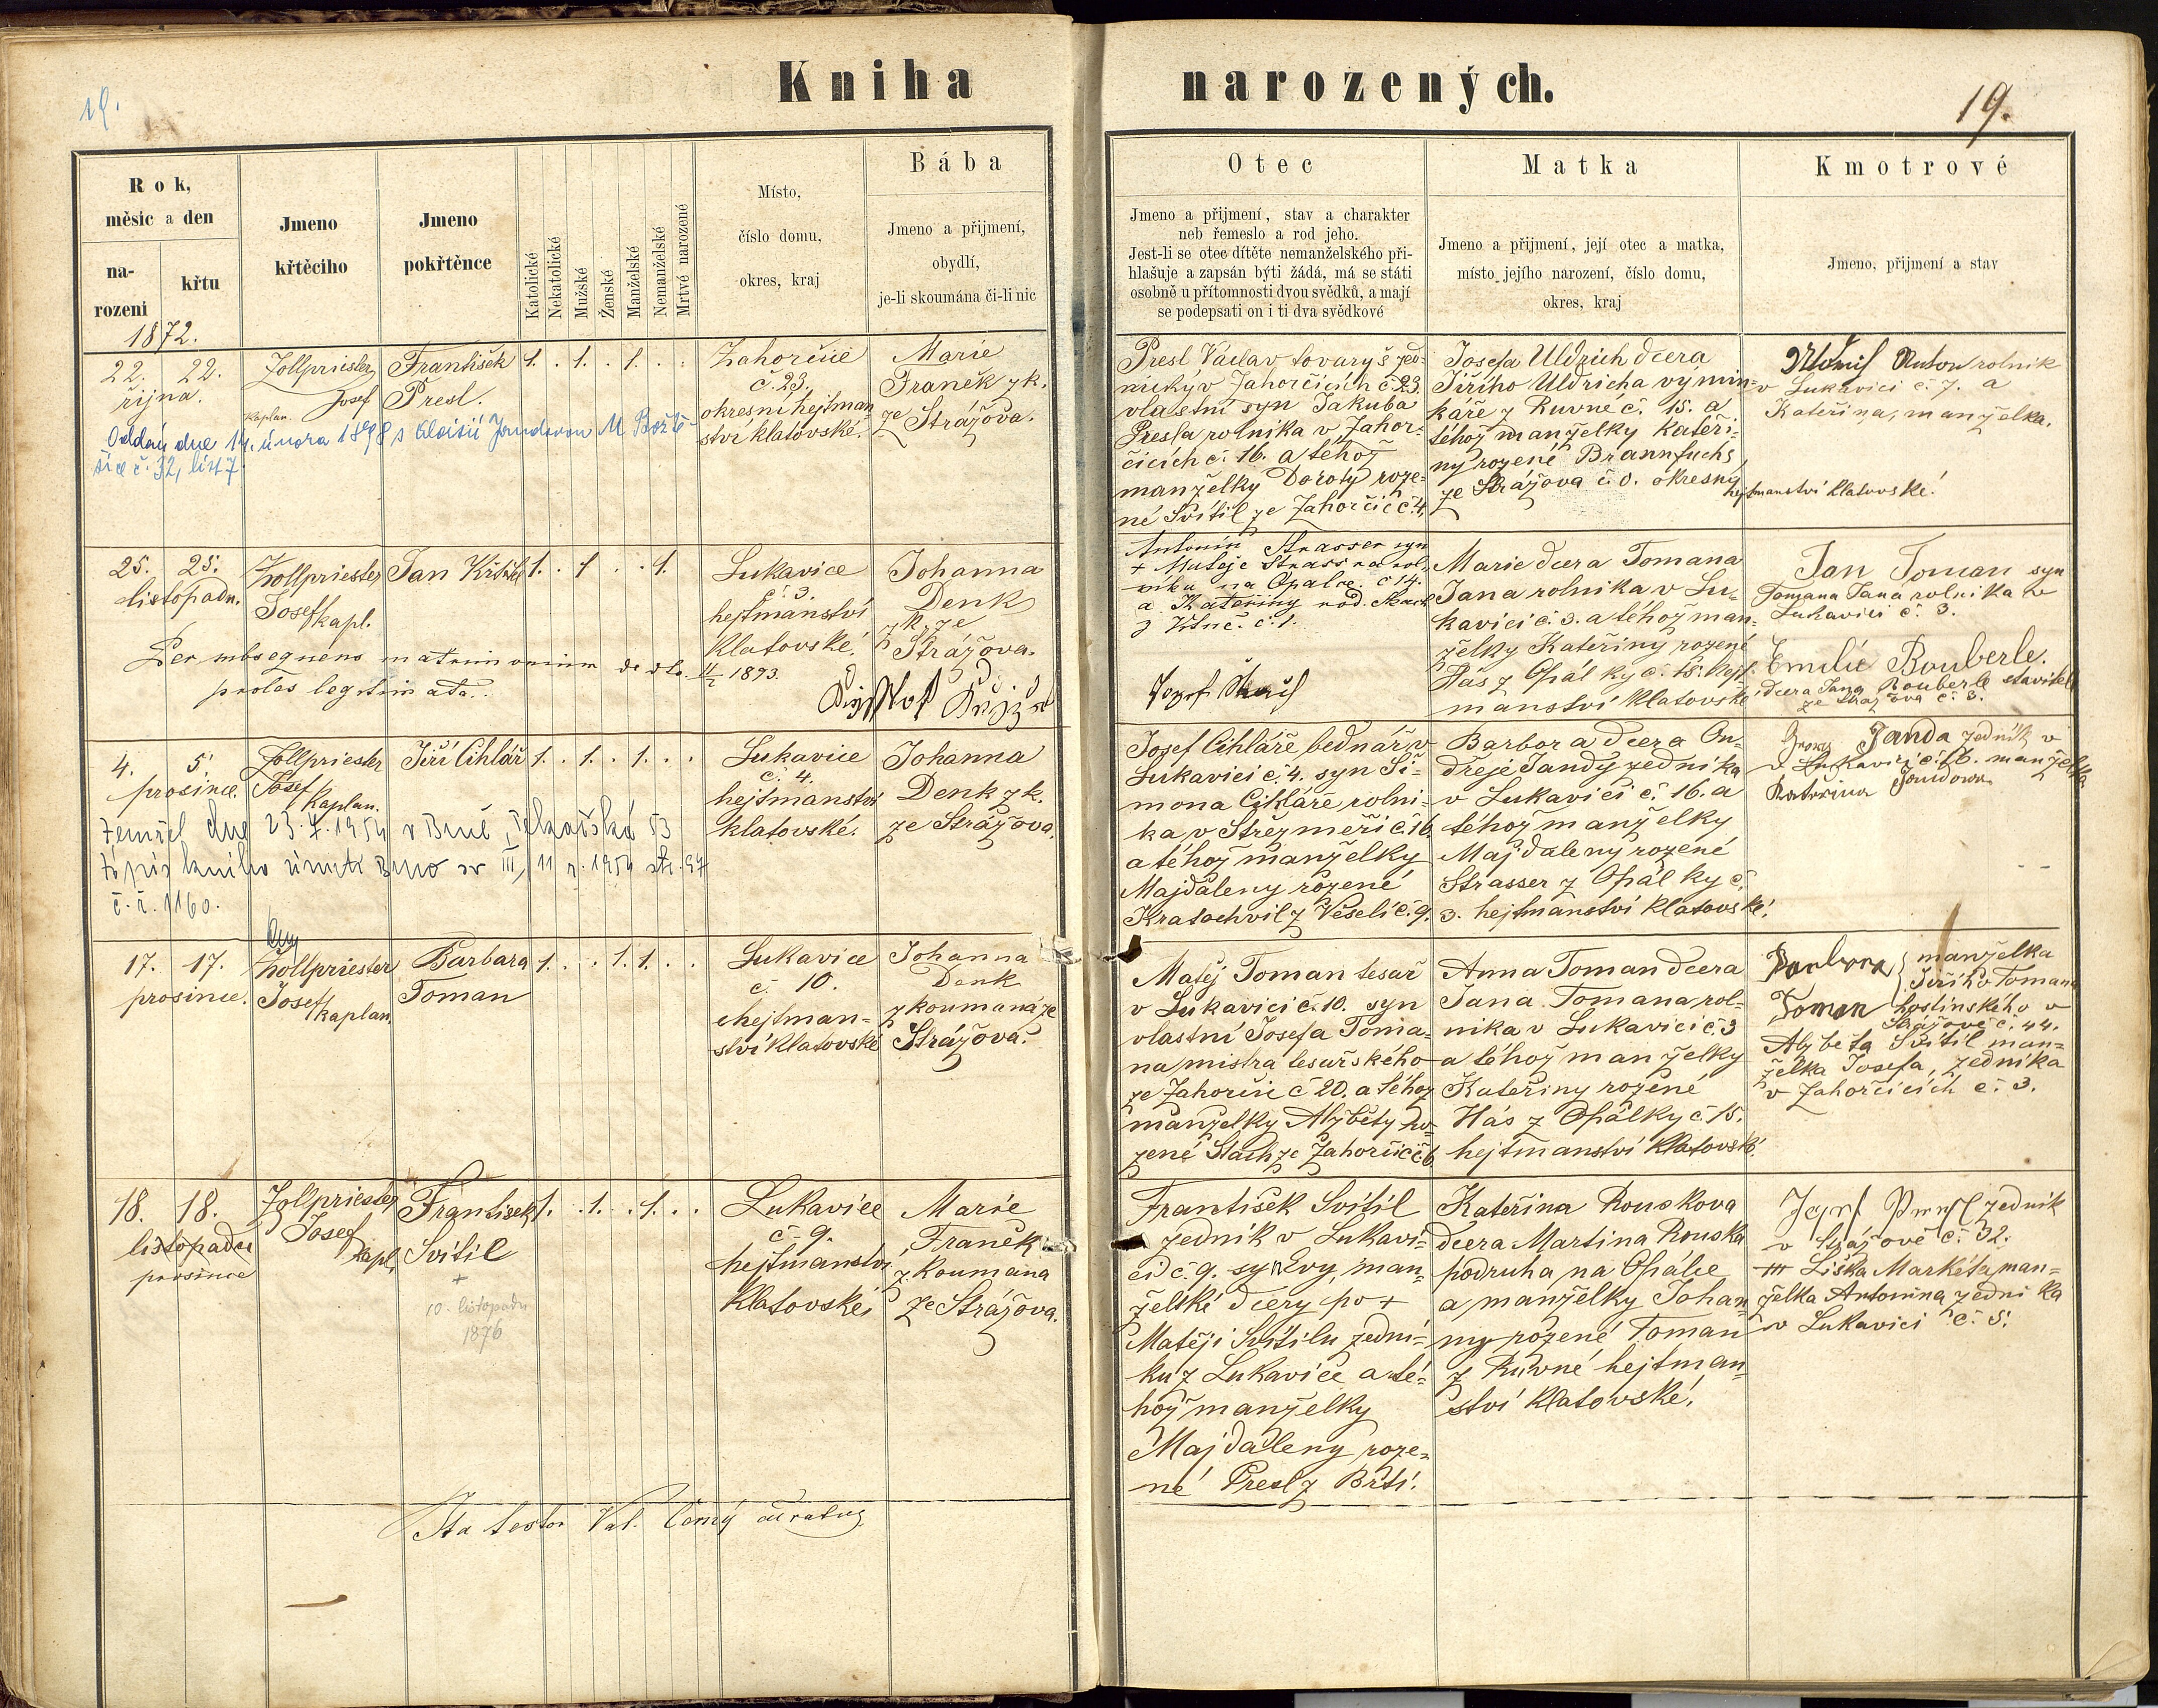 19.
Kniha narozených.
19.
Rok,
měsic a den
na-
rozeni
křtu
Jmeno
křtěciho
Jmeno
pokřtěnce
Katolické
Nekatolické
Mužské
Ženské
Manželské
Nemanželské
Mrtvé narozené
Místo,
číslo domu,
okres, kraj
Bába
Jmeno a přijmení,
obydlí,
je-li skoumána či-li nic
Otec
Jmeno a přijmení, stav a charakter
neb řemeslo a rod jeho.
Jest-li se otec dítěte nemanželského při-
hlašuje a zapsán býti žádá, má se státi
osobně u přítomnosti dvou svědků, a mají
se podepsati on i ti dva svědkové
Matka
Jmeno a přijmení, její otec a matka,
místo jejího narození, číslo domu,
okres, kraj
Kmotrové
Jmeno, přijmení a stav
1872.
22. 22.
řijna.
Zollpriester
Josef
kaplan.
František
Presl.
1. . 1. . 1. . .
Zahorčice
č. 23.
okresní hejtman
ství klatovské.
Marie
Franěk zk.
ze Strážova.
Oddán dne 14. února 1898 s Aloisií Jandovou
č. 32, list 7.
Presl Václav tovaryš zed-
nický v Zahorčicích č. 23.
vlastní syn Jakuba
Presla rolnika v Zahor-
čicích č. 16. a téhož
manželky Doroty roze-
né Svitil ze Zahorčic č. 4.
Josefa Uldrich dcera
Jiřího Uldricha výmin-
káře z Ruvné č. 15. a
téhož manželky Kateři-
ny rozené Brannfuchs
ze Strážova č. 0. okresný
hejtmanství klatovské.
Anton rolnik
v Lukavici č. 7. a
Kateřina, manželka.
25. 25.
listopadu.
Zollpriester
Josef kapl.
Jan Křtitel
1. . 1 . . 1.
Lukavice
č. 3.
hejtmanství
Klatovské.
Johanna
Denk
zk. ze
Strážova.
Per subsequens matrimonium de dto. 4/2 1893.
proles legitimata.
Antonín Strasser syn
+ Matěje Strassra rol-
níka na Opalce č 14.
a Kateřiny rod.
č. 1.
Marie dcera Tomana
Jana rolnika v Lu-
kavici č. 3. a téhož man-
želky Kateřiny rozené
Hás z Opálky č. 15. hejt-
manství Klatovské
Jan Toman syn
Tomana Jana rolnika v
Lukavici č. 3.
Emilie Bouberle.
dcera Jana Bouberle stavitele
ze Strážova č. 3.
4. 5
prosince.
Zollpriester
Josef
Kaplan.
Jiří Cihlář
1. . 1. . 1. . .
Lukavice
č. 4.
hejtmanství
klatovské.
Johanna
Denk zk.
ze Strážova.
Zemřel dne 23.4.1954 v Brně, 53
Zápis knihy úmrtí Brno sv III, 11 r. 1954 str. 94
č. ř. 1160.
Josef Cihlář bednář v
Lukavici č. 4. syn Ši-
mona Cihláře rolni-
ka v Střezměři č. 16.
a téhož manželky
Majdaleny rozené
Kratochvil z Veselí č. 9.
Barbora dcera On-
dřeje Jandy zedníka
v Lukavici č. 16. a
téhož manželky
Majdaleny rozené
Strasser z Opálky č.
3. hejtmanství klatovské.
Georg Janda zedník v
v Lukavici č. 16. manželka
Katerina Jandowa
17. 17.
prosince.
Zollpriester
Josef
kaplan.
Barbara
Toman
1. . . 1. 1. . .
Lukavice
č. 10.
hejtman-
ství Klatovské
Johanna
Denk
zkoumaná ze
Strážova.
Matěj Toman tesař
v Lukavici č. 10. syn
vlastní Josefa Toma-
na mistra tesařského
ze Zahorčic č 20. a téhož
manželky Alžběty ro-
zené Stach ze Zahorčic č 6.
Anna Toman dcera
Jana Tomana rol-
nika v Lukavici č. 3
a téhož manželky
Kateřiny rozené
Hás z Opálky č 15.
hejtmanství Klatovské.
Barbora manželka
Jiřího Tomana
Toman hostinského v
Strážově č. 44.
Alžběta Svitil man-
želka Josefa, zedníka
v Zahorčicích č. 3.
18. 18.
listopadu
prosince
Zollpriester
Josef
kapl.
František
Svitil
+
10. listopadu
1876
1. . 1. . 1. . .
Lukavice
č. 9.
hejtmanstv.
Klatovské
Marie
Franěk
zkoumána
ze Strážova.
František Svitil
zedník v Lukavi-
ci č. 9. syn Evy, man-
želské dcery po +
Matěji Svitilu zední-
ku z Lukavice a té-
hož manželky
Majdaleny, roze-
né Presl z Brtí.
Kateřina Rouskova
dcera Martina Rouska
podruha na Opálce
a manželky Johan-
ny rozené Toman
z Ruvné hejtman-
ství Klatovské.
zedník
v Strážově č. 32.
Liška Markéta man-
želka Antonína zedníka
v Lukavici č. 5.
Ita testor Val. Černý curatus